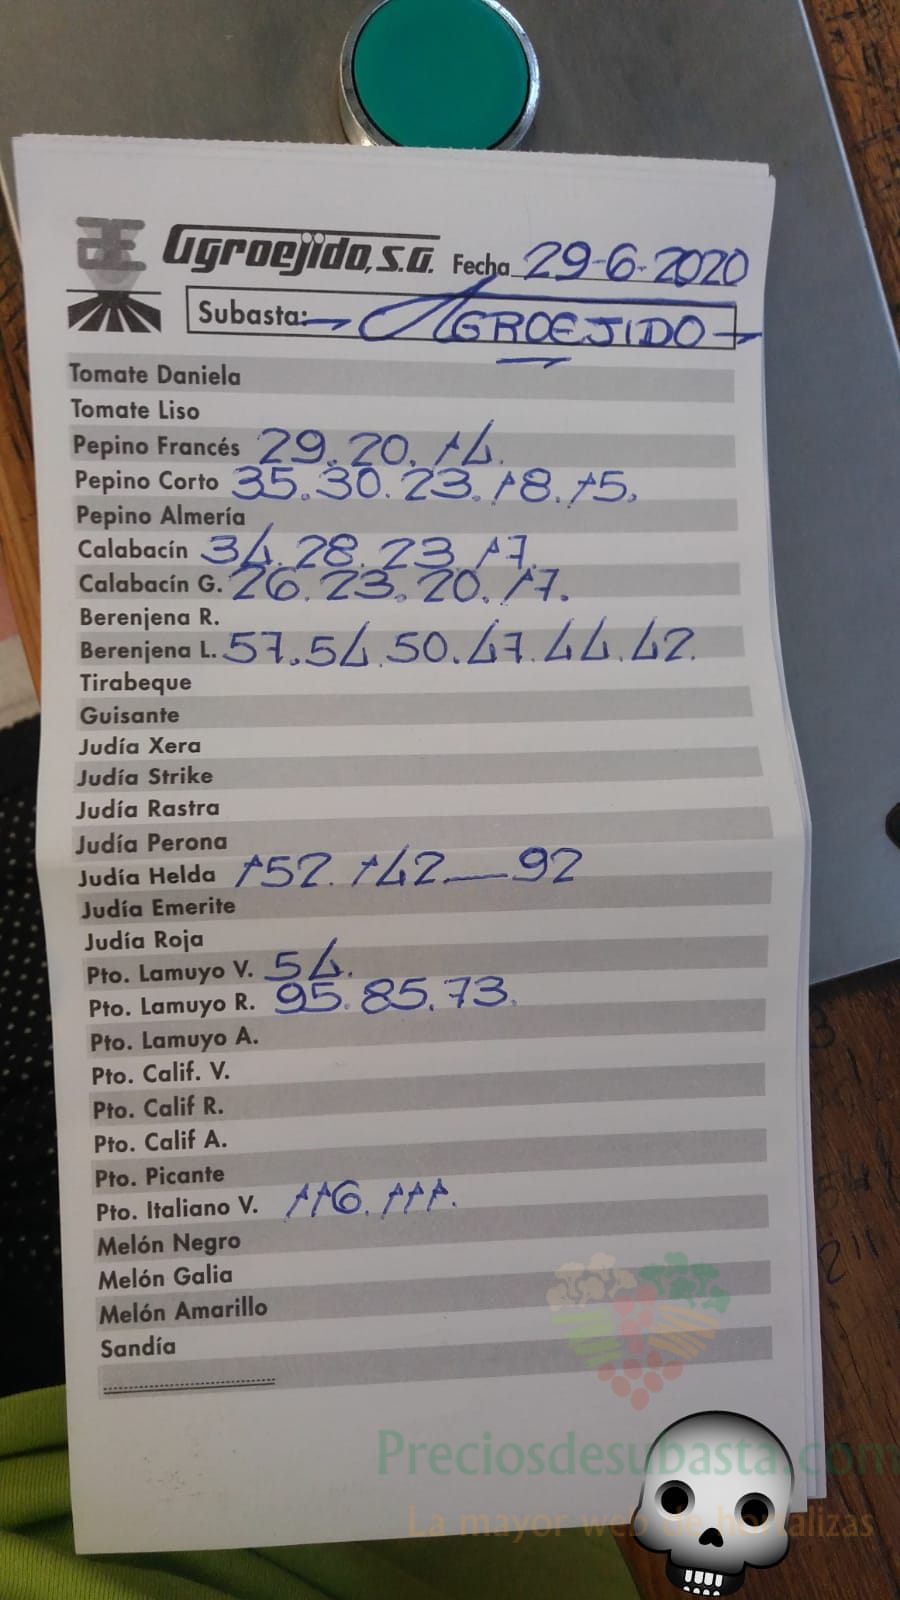 Agroejido, S.A. Fecha 29-6-2020
Subasta: AGROEJIDO
Tomate Daniela
Tomate Liso
Pepino Francés 29. 20. 14.
Pepino Corto 35. 30. 23. 18. 15.
Pepino Almería
Calabacín 34. 28. 23. 17.
Calabacín G. 26. 23. 20. 17.
Berenjena R.
Berenjena L. 57. 54. 50. 47. 44. 42.
Tirabeque
Guisante
Judía Xera
Judía Strike
Judía Rastra
Judía Perona
Judía Helda 152. 142. — 92
Judía Emerite
Judía Roja
Pto. Lamuyo V. 54.
Pto. Lamuyo R. 95. 85. 73.
Pto. Lamuyo A.
Pto. Calif. V.
Pto. Calif R.
Pto. Calif A.
Pto. Picante
Pto. Italiano V. 116. 111.
Melón Negro
Melón Galia
Melón Amarillo
Sandía
Preciosdesubasta.com
La mayor web de hortalizas